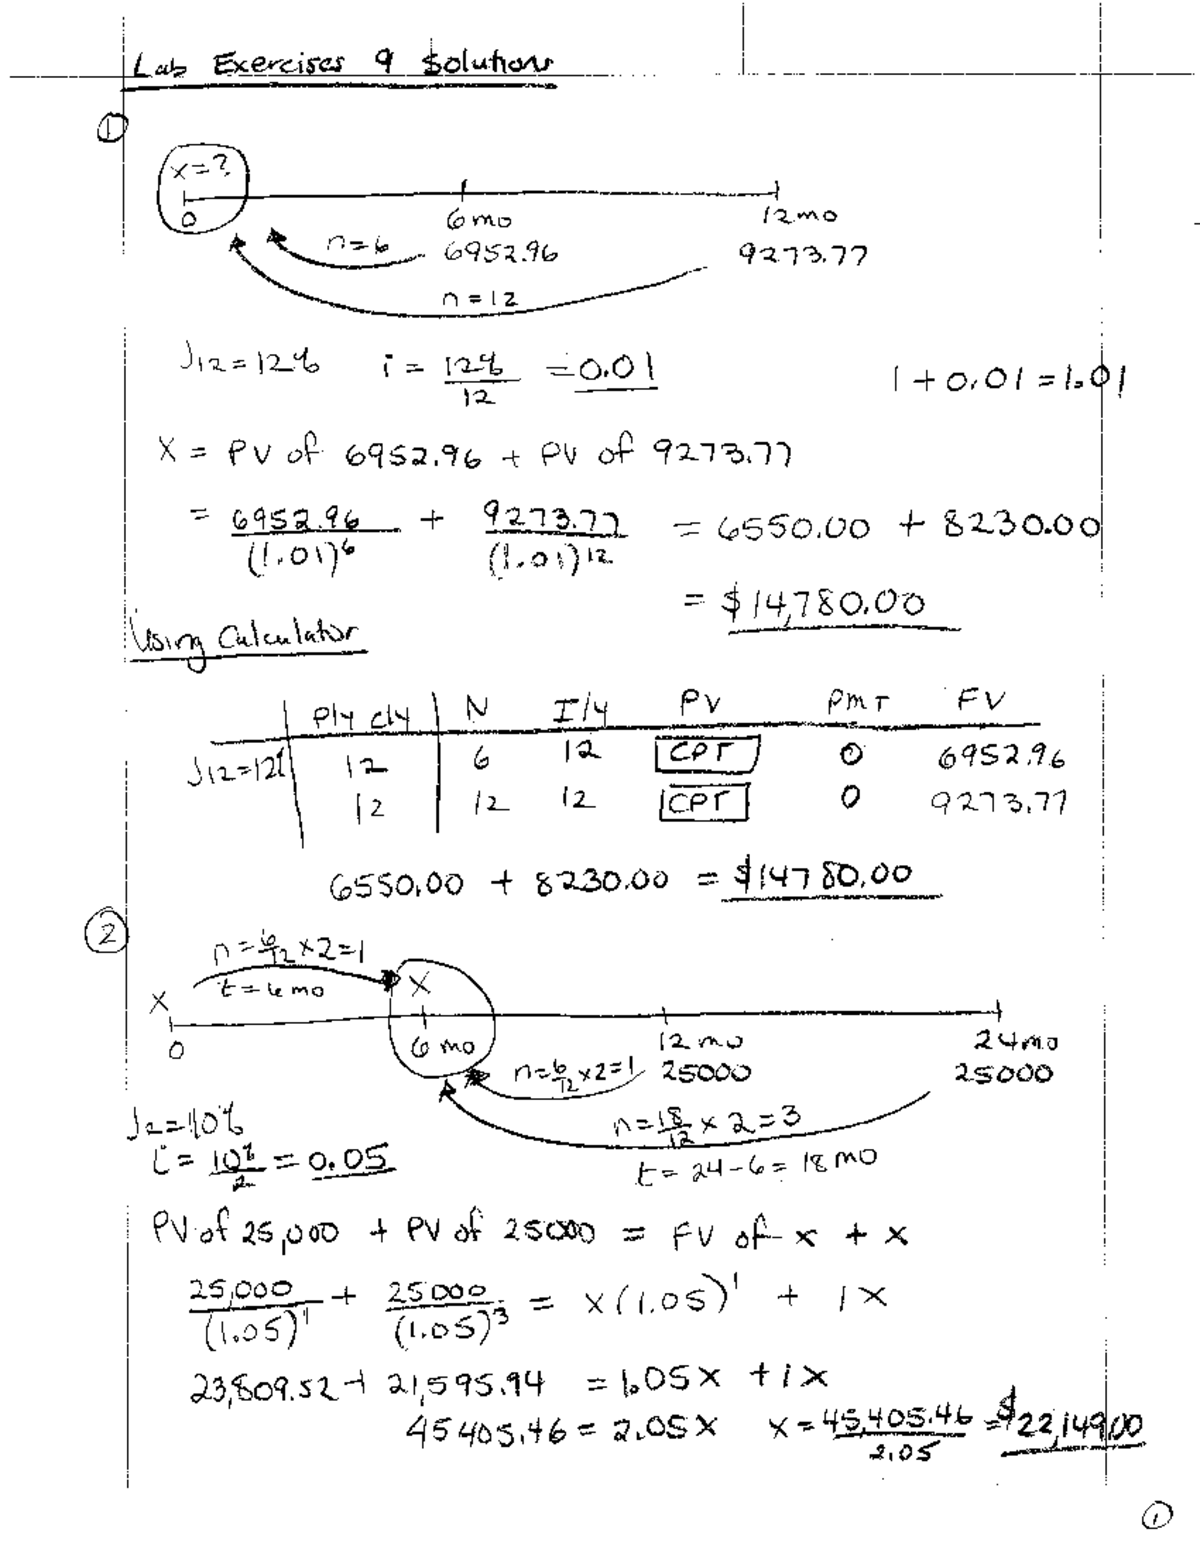 Lab Exercises 9 Solutions
①
x=?
0 6mo 12mo
n=6 6952.96 9273.77
n=12
J12=12% i = 12%/12 = 0.01 1+0.01=1.01
X = PV of 6952.96 + PV of 9273.77
= 6952.96/(1.01)^6 + 9273.77/(1.01)^12 = 6550.00 + 8230.00
= $14,780.00
Using Calculator
P/Y C/Y N I/Y PV PMT FV
J12=12% 12 6 12 CPT 0 6952.96
12 12 12 CPT 0 9273.77
6550.00 + 8230.00 = $14780.00
②
n=6/12×2=1
t=6mo X
X
0 6 mo 12 mo 24mo
n=6/12×2=1 25000 25000
J2=10% n=18/12×2=3
i=10%/2=0.05 t=24-6=18mo
PV of 25,000 + PV of 25000 = FV of x + x
25,000/(1.05)^1 + 25000/(1.05)^3 = x(1.05)^1 + 1x
23,809.52+21,595.94 = 1.05x + 1x
45405.46=2.05x x=45,405.46/2.05=$22,149.00
①